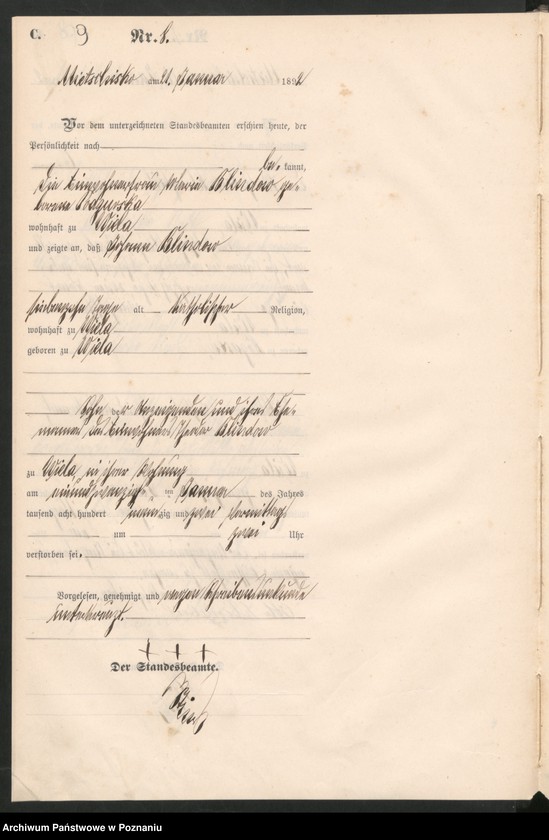 C. 9 Nr. 8.
Mietschisko am 21. Januar 1892
Vor dem unterzeichneten Standesbeamten erschien heute, der
Persönlichkeit nach
be- kannt,
die Einwohnerfrau Maria Klindow ge-
borene
wohnhaft zu Wiela
und zeigte an, daß Johann Klindow
Tage alt katholischer Religion,
wohnhaft zu Wiela
geboren zu Wiela
Sohn der Anzeigenden und ihres Ehe-
mannes, des Klindow
zu Wiela, in ihrer Wohnung
am im Januar des Jahres
tausend acht hundert neunzig und zwei Vormittags
um zwei Uhr
verstorben sei.
Vorgelesen, genehmigt und wegen Schreibensunkunde
unterkreuzt.
+ + +
Der Standesbeamte.
Archiwum Państwowe w Poznaniu